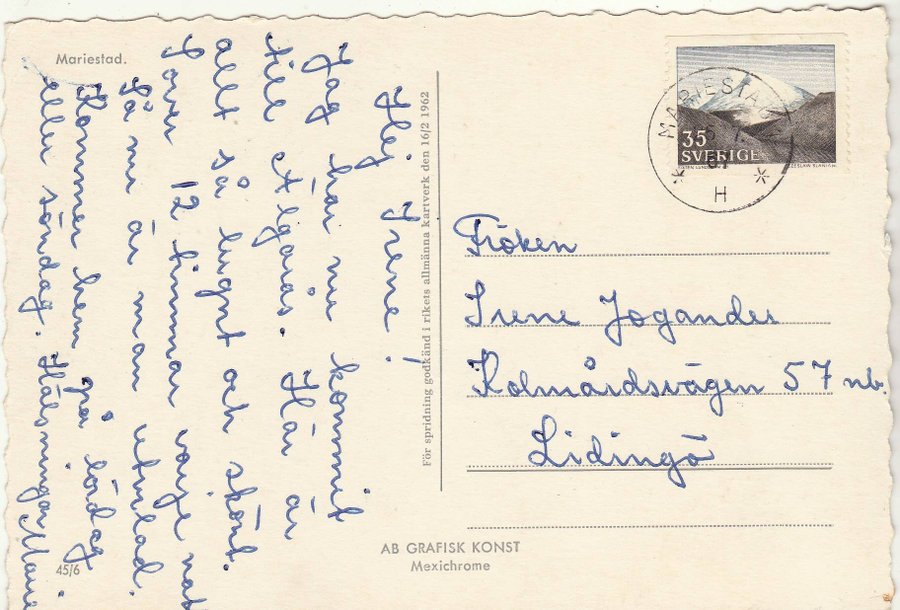 Mariestad.
Hej Irene!
Jag har nu kommit
till Älgarås. Här är
allt så lugnt och skönt.
Sover 12 timmar varje natt
Så nu är man utvilad.
Kommer hem på lördag
eller söndag. Hälsningar
45/6
För spridning godkänd i rikets allmänna kartverk den 16/2 1962
AB GRAFISK KONST
Mexichrome
35
SVERIGE
CZESLAW SLANIA
MARIESTAD
H
Fröken
Irene Jogander
Kolmårdsvägen 57 nb.
Lidingö